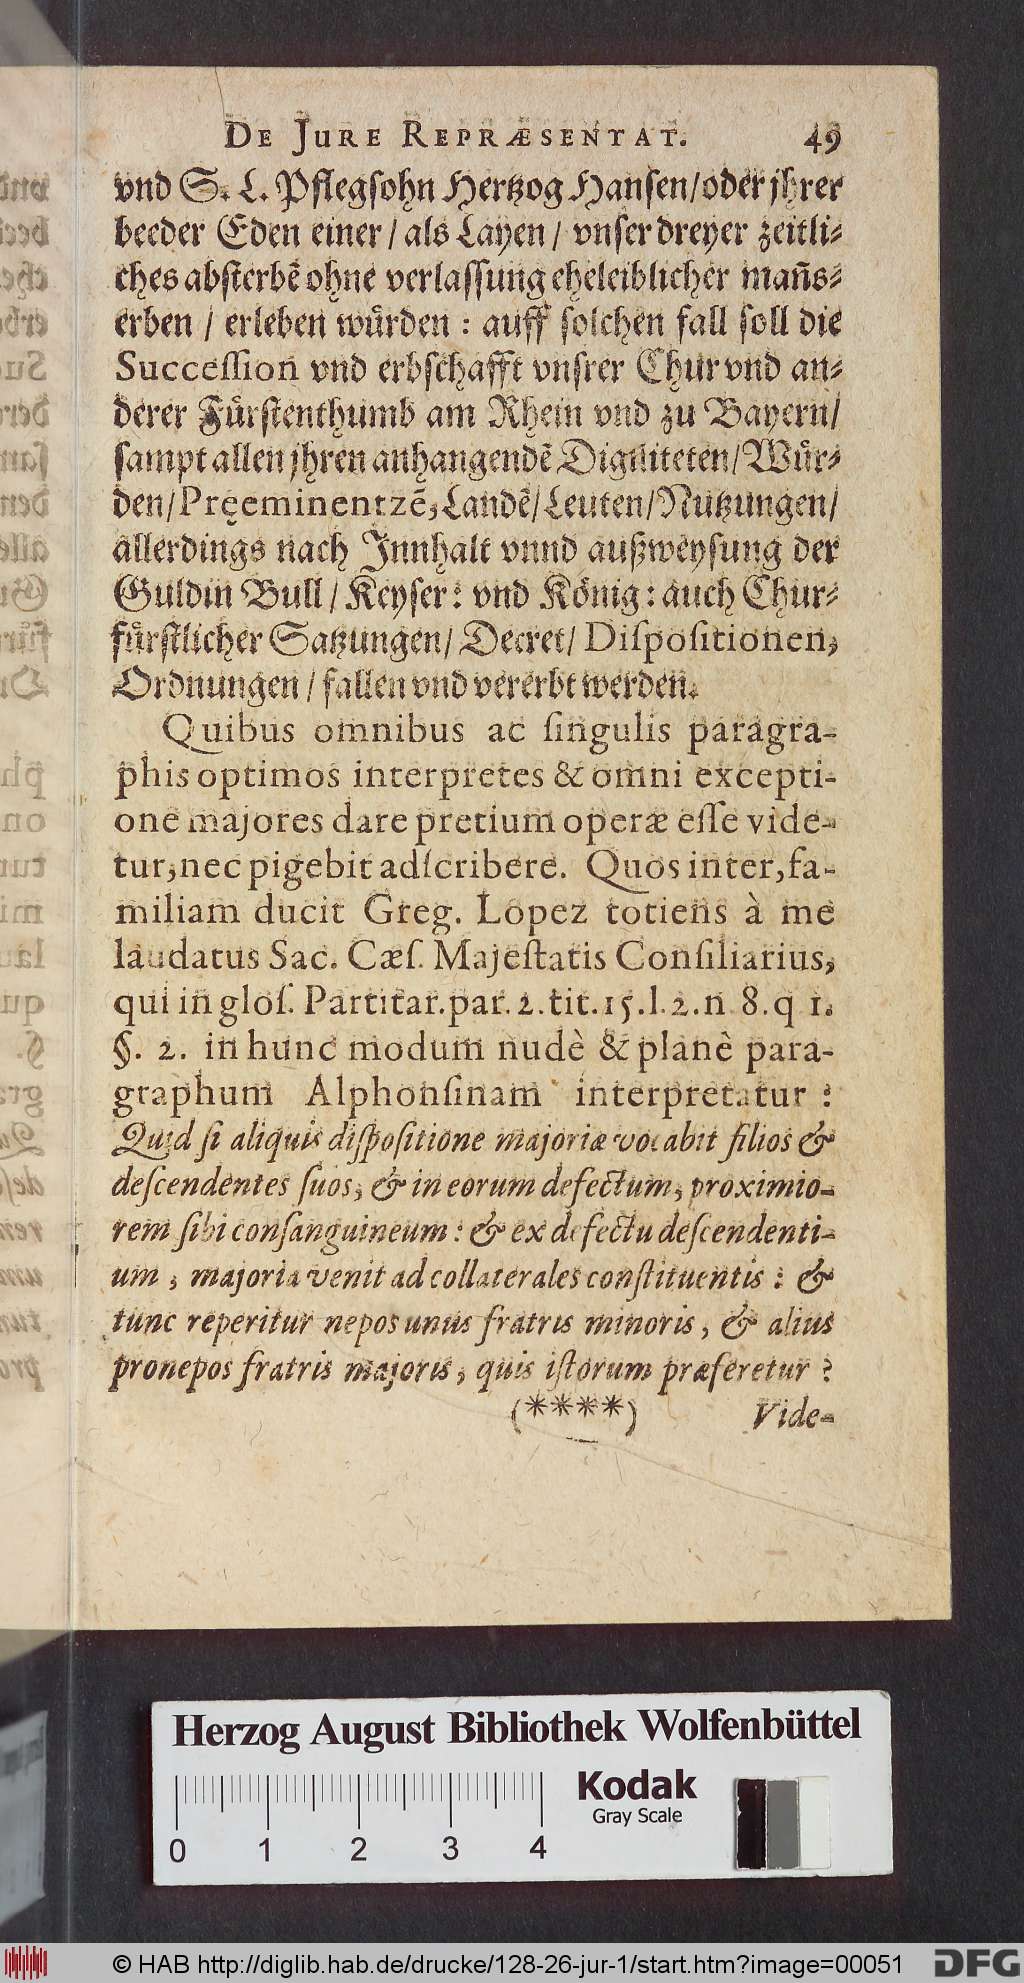 DE JURE REPRÆSENTAT. 49
vnd S. L. Pflegsohn Hertzog Hansen/oder jhrer
beeder Eden einer / als Layen / vnser dreyer zeitli⸗
ches absterbẽ ohne verlassung eheleiblicher mañs⸗
erben / erleben würden : auff solchen fall soll die
Succeſſion vnd erbschafft vnsrer Chur vnd an⸗
derer Fürstenthumb am Rhein vnd zu Bayern/
sampt allen jhren anhangendẽ Digniteten/Wür⸗
den/Pręeminentzẽ, Landẽ/Leuten/Nutzungen/
allerdings nach Jnnhalt vnnd außweysung der
Guldin Bull / Keyser: vnd König: auch Chur⸗
fürstlicher Satzungen/ Decret/ Diſpoſitionen,
Ordnungen / fallen vnd vererbt werden.
Quibus omnibus ac ſingulis paragra-
phis optimos interpretes & omni excepti-
one majores dare pretium operæ eſſe vide-
tur, nec pigebit adſcribere. Quos inter, fa-
miliam ducit Greg. Lopez totiens à me
laudatus Sac. Cæſ. Majeſtatis Conſiliarius,
qui in gloſ. Partitar. par. 2. tit. 15. l. 2. n 8. q 1.
§. 2. in hunc modum nudè & planè para-
graphum Alphonſinam interpretatur :
Quid ſi aliquis diſpoſitione majoriæ vocabit filios &
deſcendentes ſuos, & in eorum defectum, proximio-
rem ſibi conſanguineum : & ex defectu deſcendenti-
um , majoria venit ad collaterales conſtituentis : &
tunc reperitur nepos unus fratris minoris, & alius
pronepos fratris majoris, quis iſtorum præferetur ?
(****) Vide-
Herzog August Bibliothek Wolfenbüttel
Kodak
Gray Scale
0 1 2 3 4
© HAB http://diglib.hab.de/drucke/128-26-jur-1/start.htm?image=00051 DFG